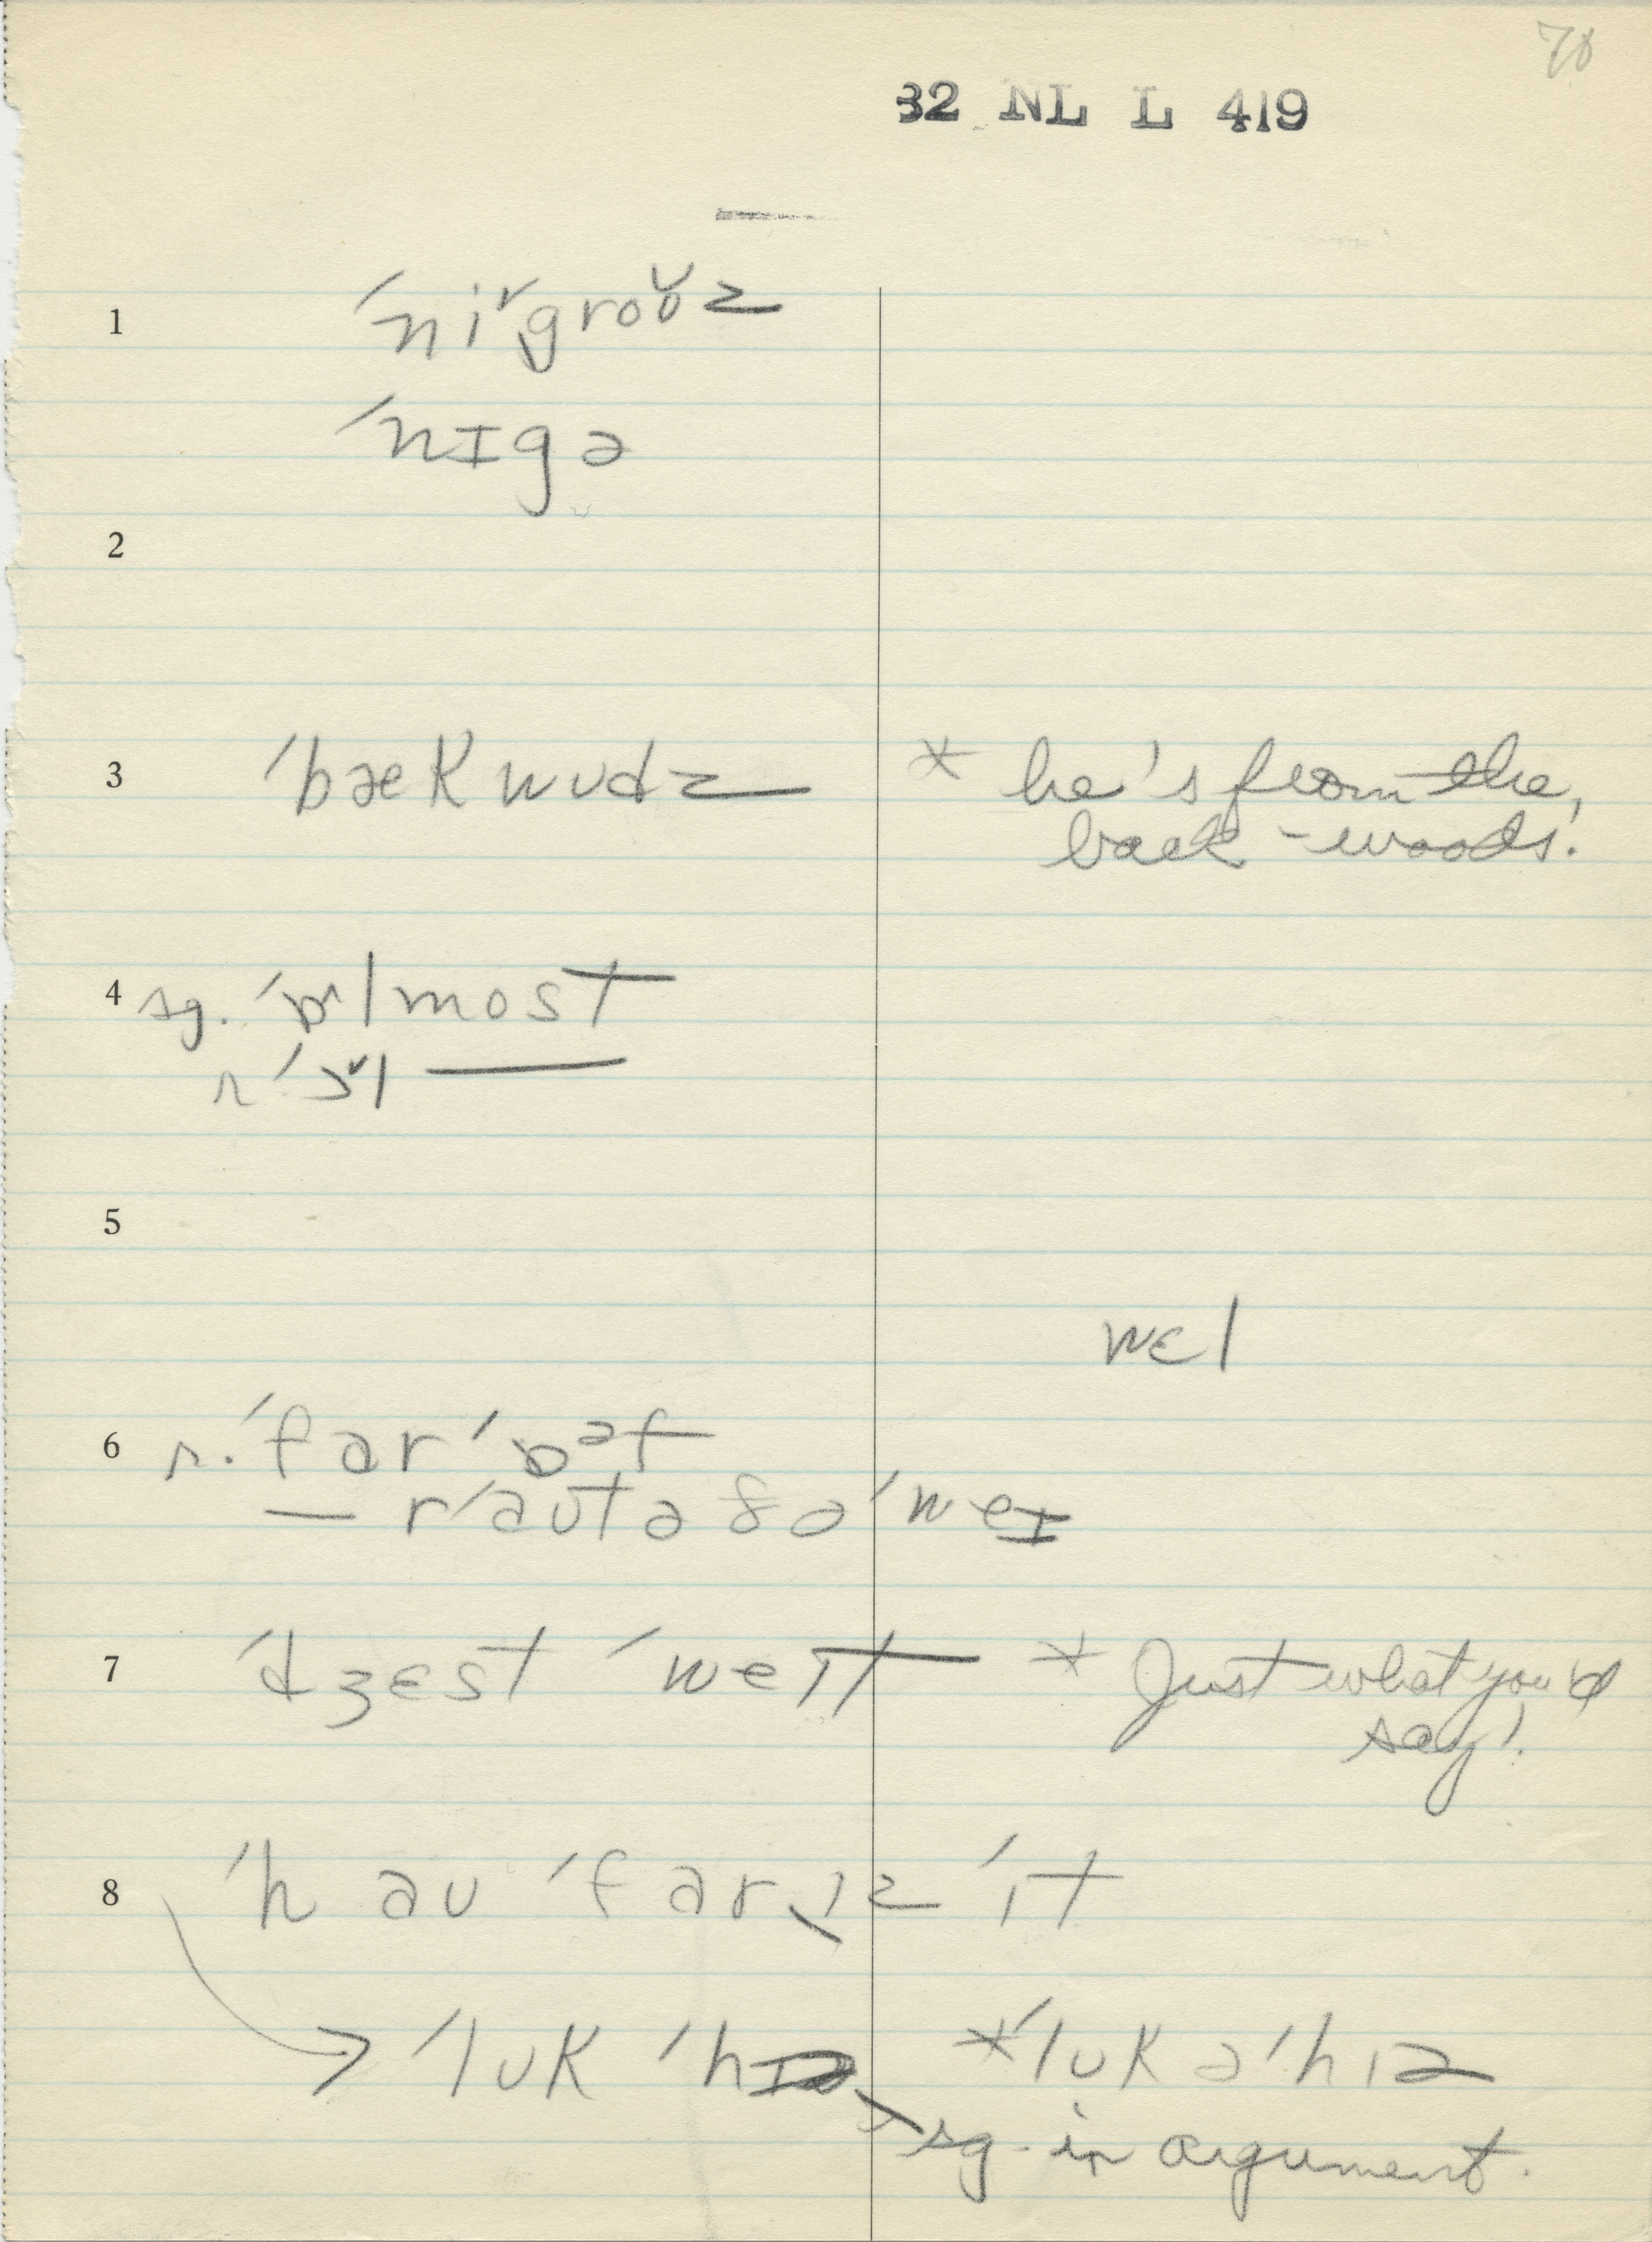 70
32 NL L 419
1 ˈniˇgroʊz
ˈnɪgə
2
3 ˈbækwʊdz * he's from the
back-woods!
4 sg. ˈɒ^lmost
r. ˈɔˇl ——
5
wɛl
6 r. ˈfarˈɒᵊf
— rˈaʊtəðəˈweɪ
7 ˈdʒɛst ˈweɪt * Just what you'd
say!
8 ˈhaʊ ˈfar‿ɪz ˈɪt
→ ˈlʊk ˈhɪə *ˈlʊk əˈhɪə
sg. in argument.